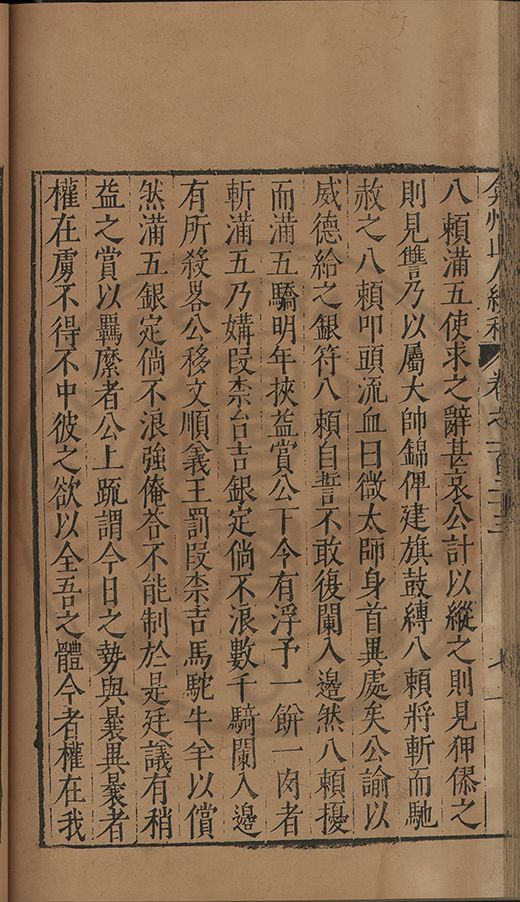 弇州山人續稿 卷之一百二十三 七
八賴滿五使求之辭甚哀公計以縱之則見狎僇之
則見讐乃以屬大帥錦俾建旗鼓縛八賴將斬而馳
赦之八賴叩頭流血曰微太師身首異處矣公諭以
威德給之銀符八賴自誓不敢復闌入邊然八賴擾
而滿五驕明年挾益賞公下令有浮予一餅一肉者
斬滿五乃媾叚柰台吉銀定倘不浪數千騎闌入邊
有所殺畧公移文順義王罰叚柰吉馬駝牛羊以償
然滿五銀定倘不浪強俺荅不能制於是廷議有稍
益之賞以羈縻者公上疏謂今日之勢與曩異曩者
權在虜不得不中彼之欲以全吾之體今者權在我